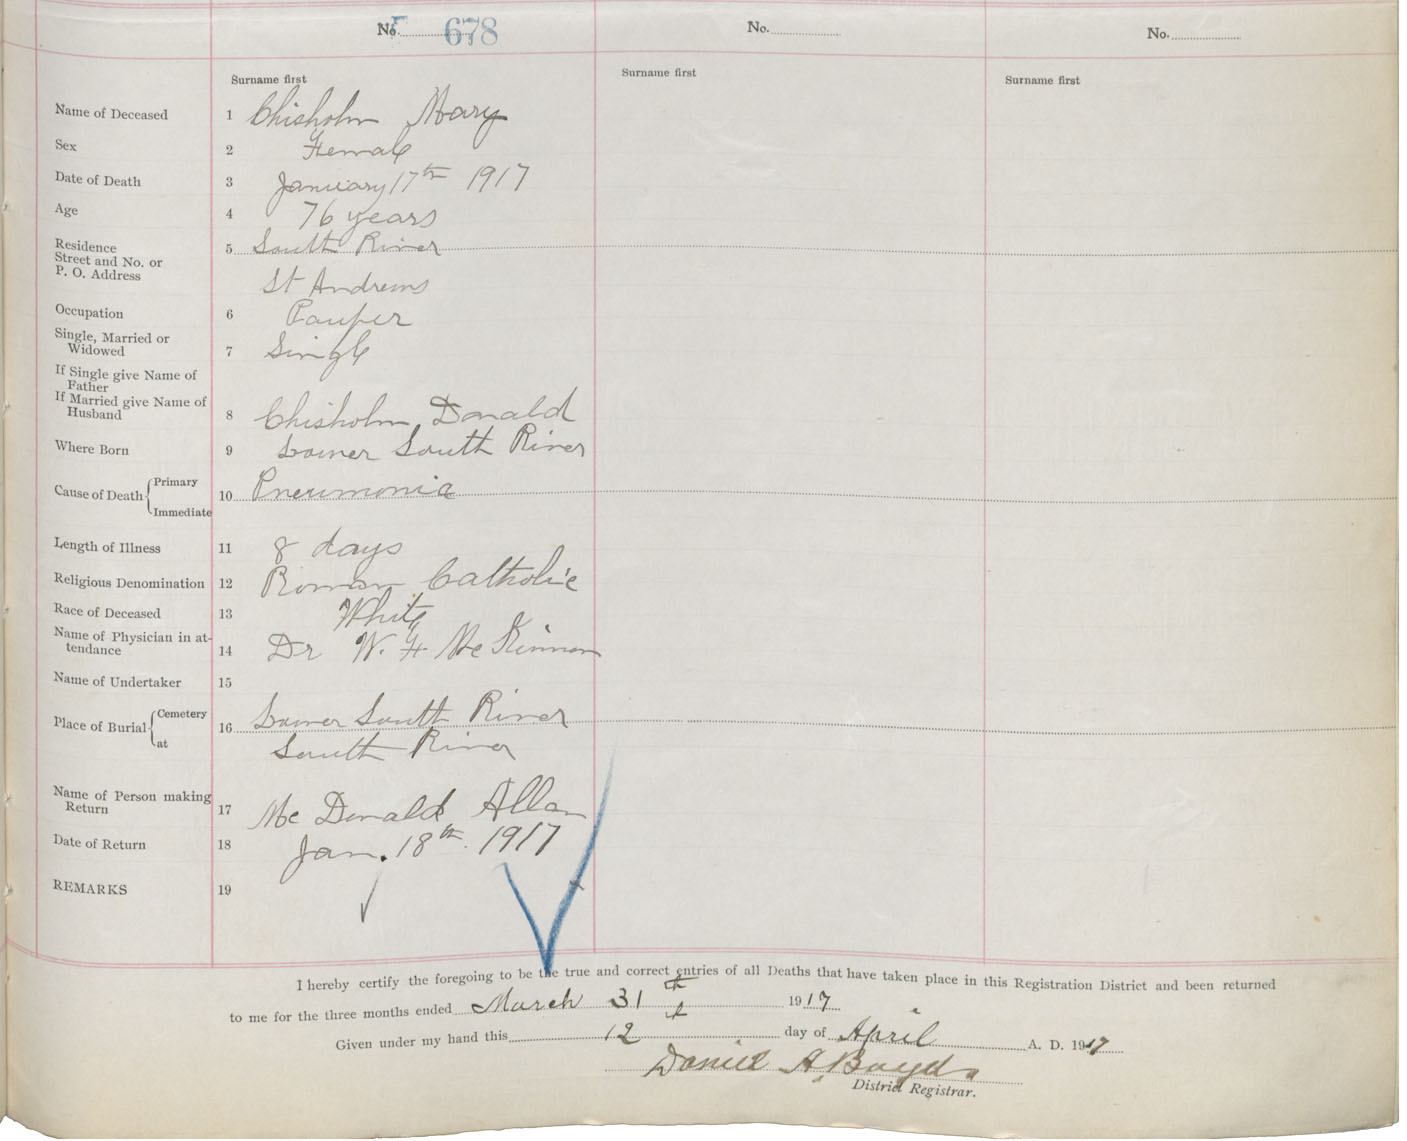 No. 5 678 No. No.
Surname first Surname first Surname first
Name of Deceased 1 Chisholm Mary
Sex 2 Female
Date of Death 3 January 17th 1917
Age 4 76 years
Residence 5 South River
Street and No. or
P. O. Address St Andrews
Occupation 6 Pauper
Single, Married or
Widowed 7 Single
If Single give Name of
Father
If Married give Name of
Husband 8 Chisholm Donald
Where Born 9 Lower South River
Cause of Death Primary
10 Pneumonia
Immediate
Length of Illness 11 8 days
Religious Denomination 12 Roman Catholic
Race of Deceased 13 White
Name of Physician in at-
tendance 14 Dr W. F. McKinnon
Name of Undertaker 15
Place of Burial Cemetery 16 Lower South River
at South River
Name of Person making
Return 17 McDonald Allan
Date of Return 18 Jan. 18th. 1917
REMARKS 19
I hereby certify the foregoing to be the true and correct entries of all Deaths that have taken place in this Registration District and been returned
to me for the three months ended March 31th 1917
Given under my hand this 12th day of April A. D. 1917
Daniel A. Boyd
District Registrar.